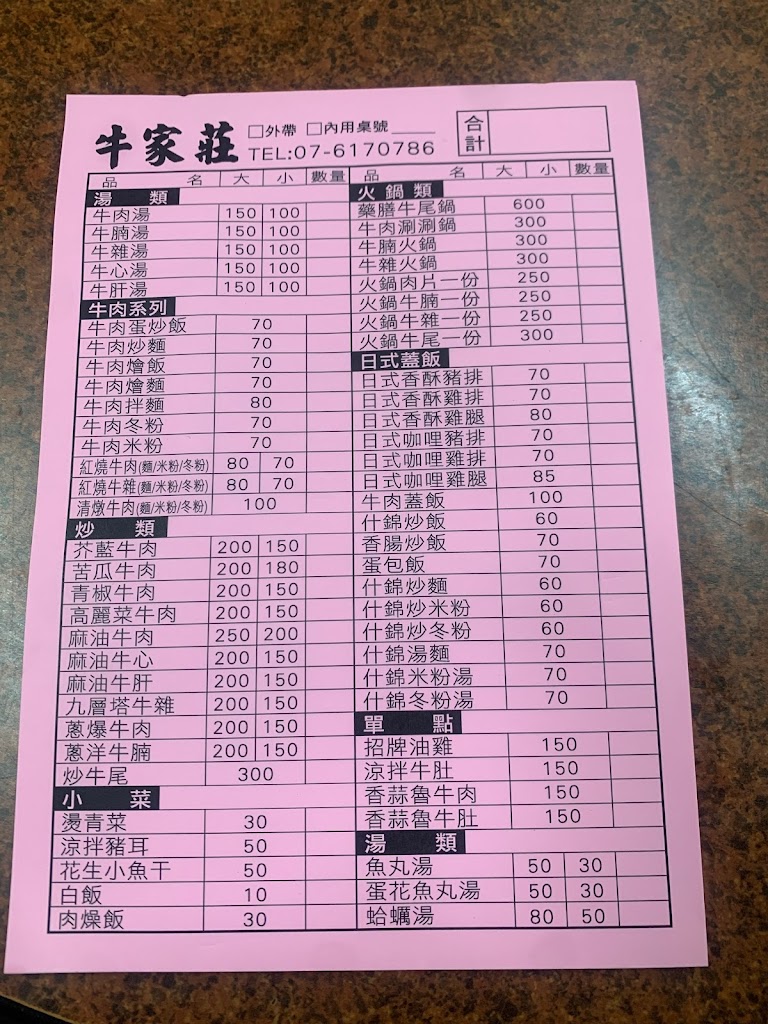 牛家莊 □外帶 □內用桌號____ 合計
TEL:07-6170786
品名 大 小 數量
湯類
牛肉湯 150 100
牛腩湯 150 100
牛雜湯 150 100
牛心湯 150 100
牛肝湯 150 100
牛肉系列
牛肉蛋炒飯 70
牛肉炒麵 70
牛肉燴飯 70
牛肉燴麵 70
牛肉拌麵 80
牛肉冬粉 70
牛肉米粉 70
紅燒牛肉(麵/米粉/冬粉) 80 70
紅燒牛雜(麵/米粉/冬粉) 80 70
清燉牛肉(麵/米粉/冬粉) 100
炒類
芥藍牛肉 200 150
苦瓜牛肉 200 180
青椒牛肉 200 150
高麗菜牛肉 200 150
麻油牛肉 250 200
麻油牛心 200 150
麻油牛肝 200 150
九層塔牛雜 200 150
蔥爆牛肉 200 150
蔥洋牛腩 200 150
炒牛尾 300
小菜
燙青菜 30
涼拌豬耳 50
花生小魚干 50
白飯 10
肉燥飯 30
品名 大 小 數量
火鍋類
藥膳牛尾鍋 600
牛肉涮涮鍋 300
牛腩火鍋 300
牛雜火鍋 300
火鍋肉片一份 250
火鍋牛腩一份 250
火鍋牛雜一份 250
火鍋牛尾一份 300
日式蓋飯
日式香酥豬排 70
日式香酥雞排 70
日式香酥雞腿 80
日式咖哩豬排 70
日式咖哩雞排 70
日式咖哩雞腿 85
牛肉蓋飯 100
什錦炒飯 60
香腸炒飯 70
蛋包飯 70
什錦炒麵 60
什錦炒米粉 60
什錦炒冬粉 60
什錦湯麵 70
什錦米粉湯 70
什錦冬粉湯 70
單點
招牌油雞 150
涼拌牛肚 150
香蒜魯牛肉 150
香蒜魯牛肚 150
湯類
魚丸湯 50 30
蛋花魚丸湯 50 30
蛤蠣湯 80 50